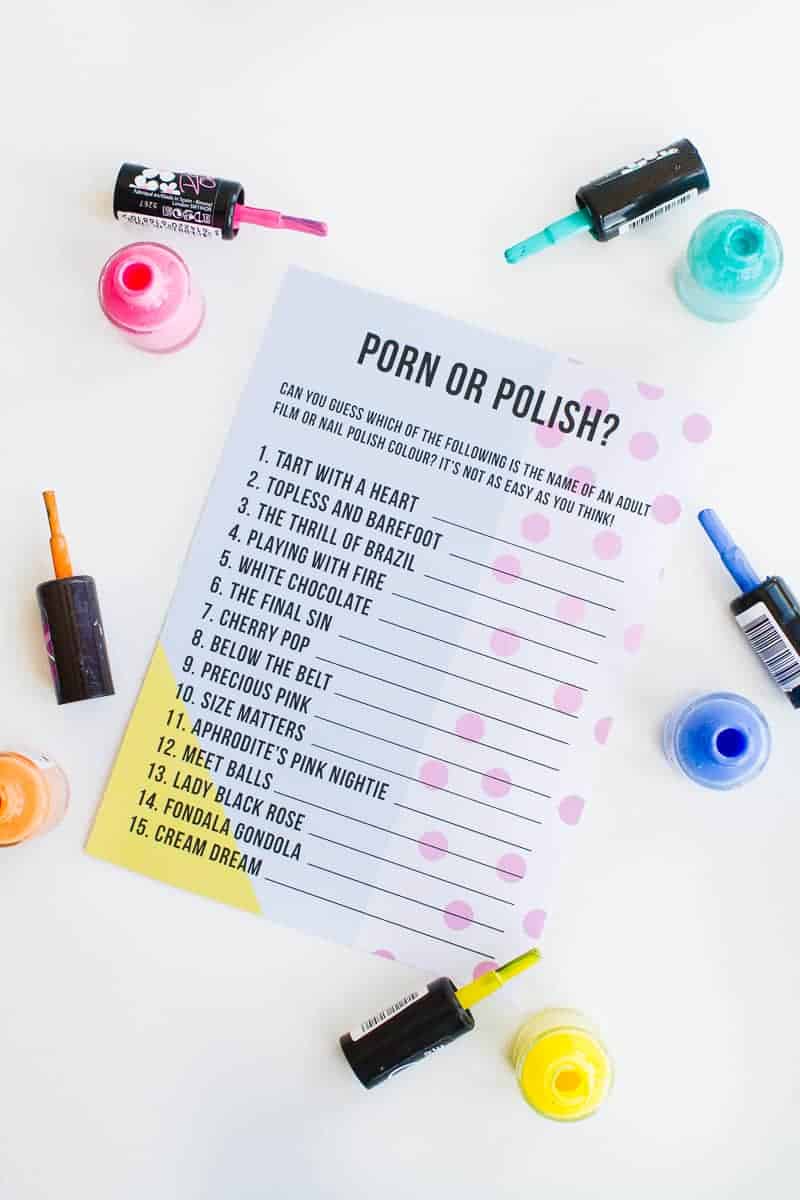 PORN OR POLISH?
CAN YOU GUESS WHICH OF THE FOLLOWING IS THE NAME OF AN ADULT
FILM OR NAIL POLISH COLOUR? IT'S NOT AS EASY AS YOU THINK!
1. TART WITH A HEART
2. TOPLESS AND BAREFOOT
3. THE THRILL OF BRAZIL
4. PLAYING WITH FIRE
5. WHITE CHOCOLATE
6. THE FINAL SIN
7. CHERRY POP
8. BELOW THE BELT
9. PRECIOUS PINK
10. SIZE MATTERS
11. APHRODITE'S PINK NIGHTIE
12. MEET BALLS
13. LADY BLACK ROSE
14. FONDALA GONDOLA
15. CREAM DREAM
3267